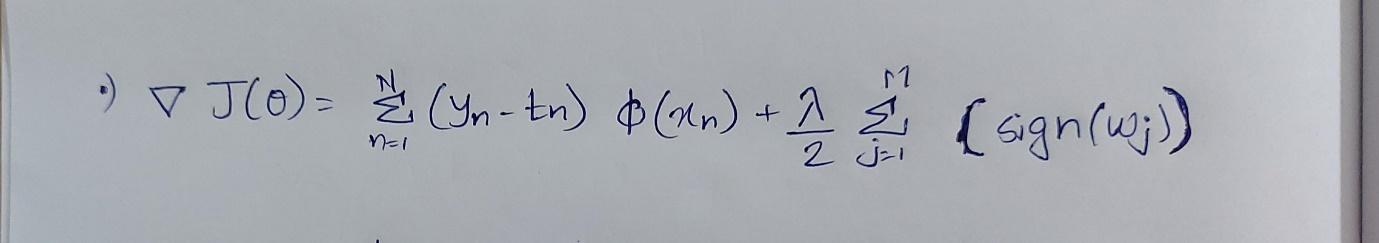 •) ∇ J(θ) = Σ_{n=1}^{N} (yn - tn) ϕ(xn) + λ/2 Σ_{j=1}^{M} (sign(wj))